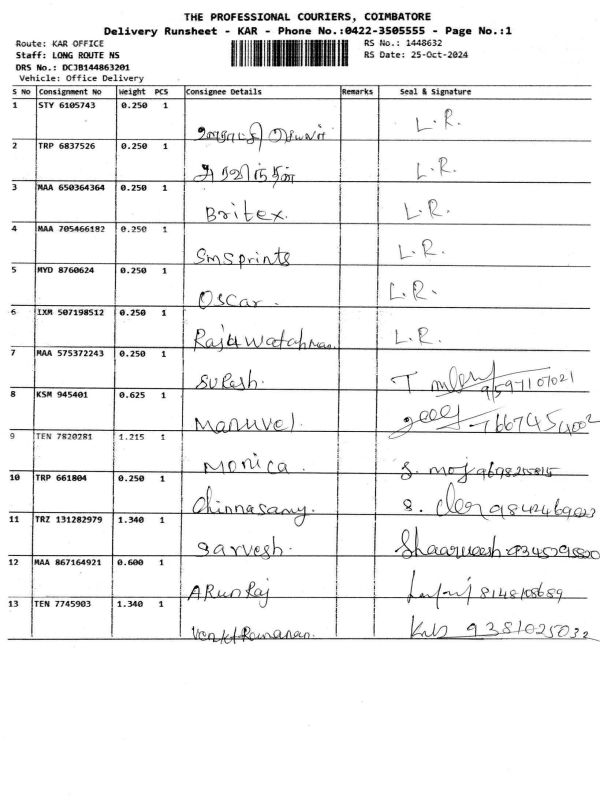 THE PROFESSIONAL COURIERS, COIMBATORE
Delivery Runsheet - KAR - Phone No.:0422-3505555 - Page No.:1
Route: KAR OFFICE RS No.: 1448632
Staff: LONG ROUTE NS RS Date: 25-Oct-2024
DRS No.: DC3B144863201
Vehicle: Office Delivery
S No Consignment No Weight PCS Consignee Details Remarks Seal & Signature
1 STY 6105743 0.250 1
L.R.
2 TRP 6837526 0.250 1
அரவிந்தன் L.R.
3 MAA 650364364 0.250 1
Britex. L.R.
4 MAA 705466182 0.250 1
Smsprints L.R.
5 MYD 8760624 0.250 1
Oscar. L.R.
6 IXM 507198512 0.250 1
L.R.
7 MAA 575372243 0.250 1
Suresh. 9597107021
8 KSM 945401 0.625 1
Manuvel. 7667454002
9 TEN 7820281 1.215 1
Monica.
10 TRP 661804 0.250 1
Chinnasamy.
11 TRZ 131282979 1.340 1
Sarvesh.
12 MAA 867164921 0.600 1
ARunRaj 8148108689
13 TEN 7745903 1.340 1
9381025032